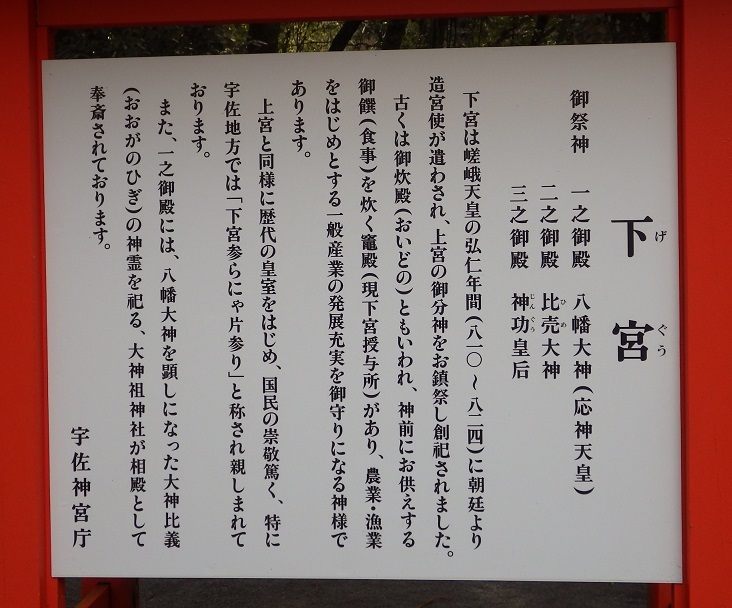 下宮
げぐう
御祭神　一之御殿　八幡大神(応神天皇)
二之御殿　比売大神
ひめ
三之御殿　神功皇后
じんぐう
下宮は嵯峨天皇の弘仁年間(八一〇〜八二四)に朝廷より
造宮使が遣わされ、上宮の御分神をお鎮祭し創祀されました。
古くは御炊殿(おいどの)ともいわれ、神前にお供えする
御饌(食事)を炊く竈殿(現下宮授与所)があり、農業・漁業
をはじめとする一般産業の発展充実を御守りになる神様で
あります。
上宮と同様に歴代の皇室をはじめ、国民の崇敬篤く、特に
宇佐地方では「下宮参らにゃ片参り」と称され親しまれて
おります。
また、一之御殿には、八幡大神を顕しになった大神比義
(おおがのひぎ)の神霊を祀る、大神祖神社が相殿として
奉斎されております。
宇佐神宮庁